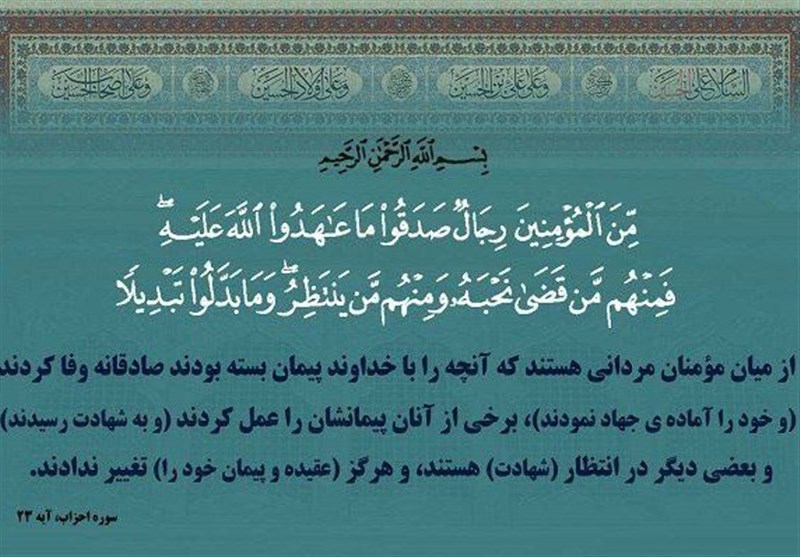 السلام علی الحسین وعلی علی بن الحسین وعلی اولاد الحسین وعلی اصحاب الحسین
بِسْمِ ٱللَّهِ ٱلرَّحْمَٰنِ ٱلرَّحِيمِ
مِّنَ ٱلْمُؤْمِنِينَ رِجَالٌ صَدَقُوا۟ مَا عَـٰهَدُوا۟ ٱللَّهَ عَلَيْهِ ۖ
فَمِنْهُم مَّن قَضَىٰ نَحْبَهُۥ وَمِنْهُم مَّن يَنتَظِرُ ۖ وَمَا بَدَّلُوا۟ تَبْدِيلًا
از میان مؤمنان مردانی هستند که آنچه را با خداوند پیمان بسته بودند صادقانه وفا کردند
(و خود را آماده ی جهاد نمودند)، برخی از آنان پیمانشان را عمل کردند (و به شهادت رسیدند)
و بعضی دیگر در انتظار (شهادت) هستند، و هرگز (عقیده و پیمان خود را) تغییر ندادند.
سوره احزاب، آیه ۲۳